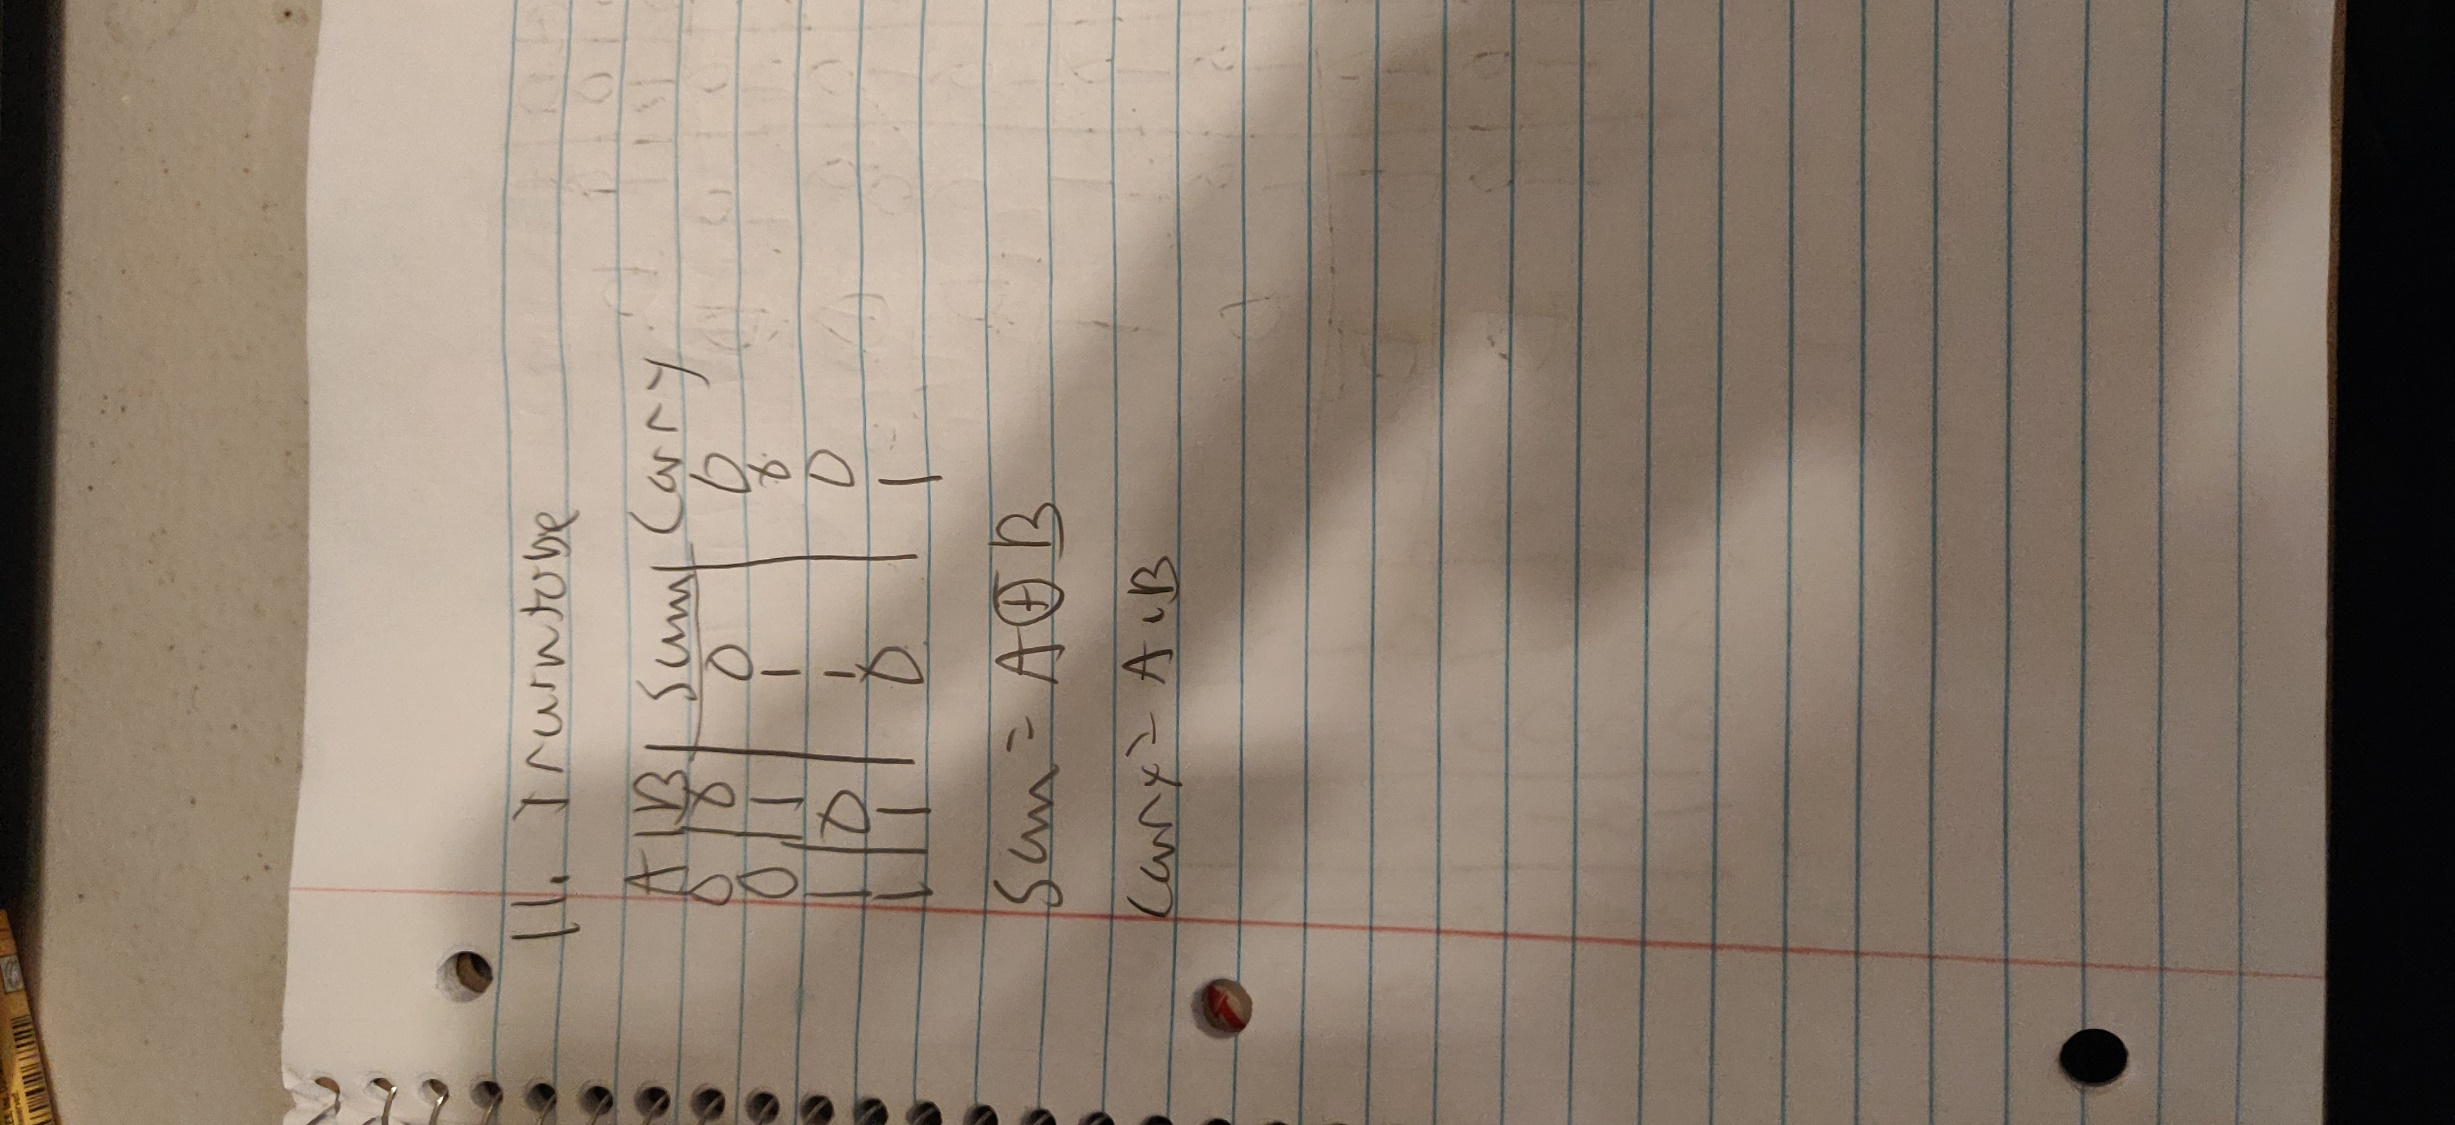 11.
A | B | Sum | Carry
0 | 0 | 0 | 0
0 | 1 | 1 | 0
1 | 0 | 1 | 0
1 | 1 | 0 | 1
Sum = A ⊕ B
Carry = A . B